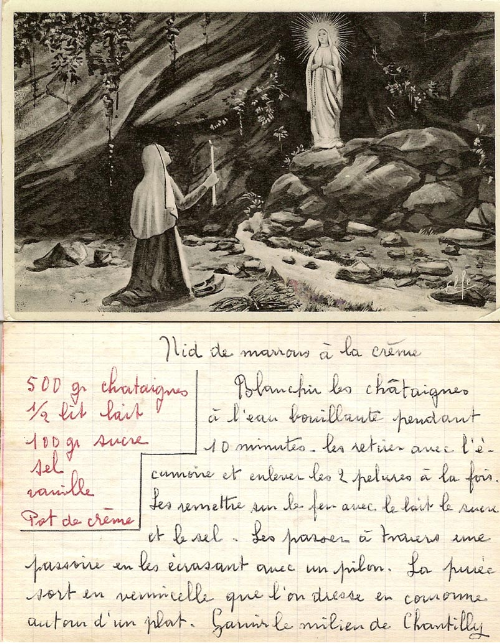 Nid de marrons à la crème
500 gr chataignes
1/2 lit lait
100 gr sucre
sel
vanille
Pot de crème
Blanchir les châtaignes
à l'eau bouillante pendant
10 minutes. les retirer avec l'é-
cumoire et enlever les 2 pelures à la fois.
Les remettre sur le feu avec le lait le sucre
et le sel. Les passer à travers une
passoire en les écrasant avec un pilon. La purée
sort en vermicelle que l'on dresse en couronne
autour d'un plat. Garnir le milieu de Chantilly